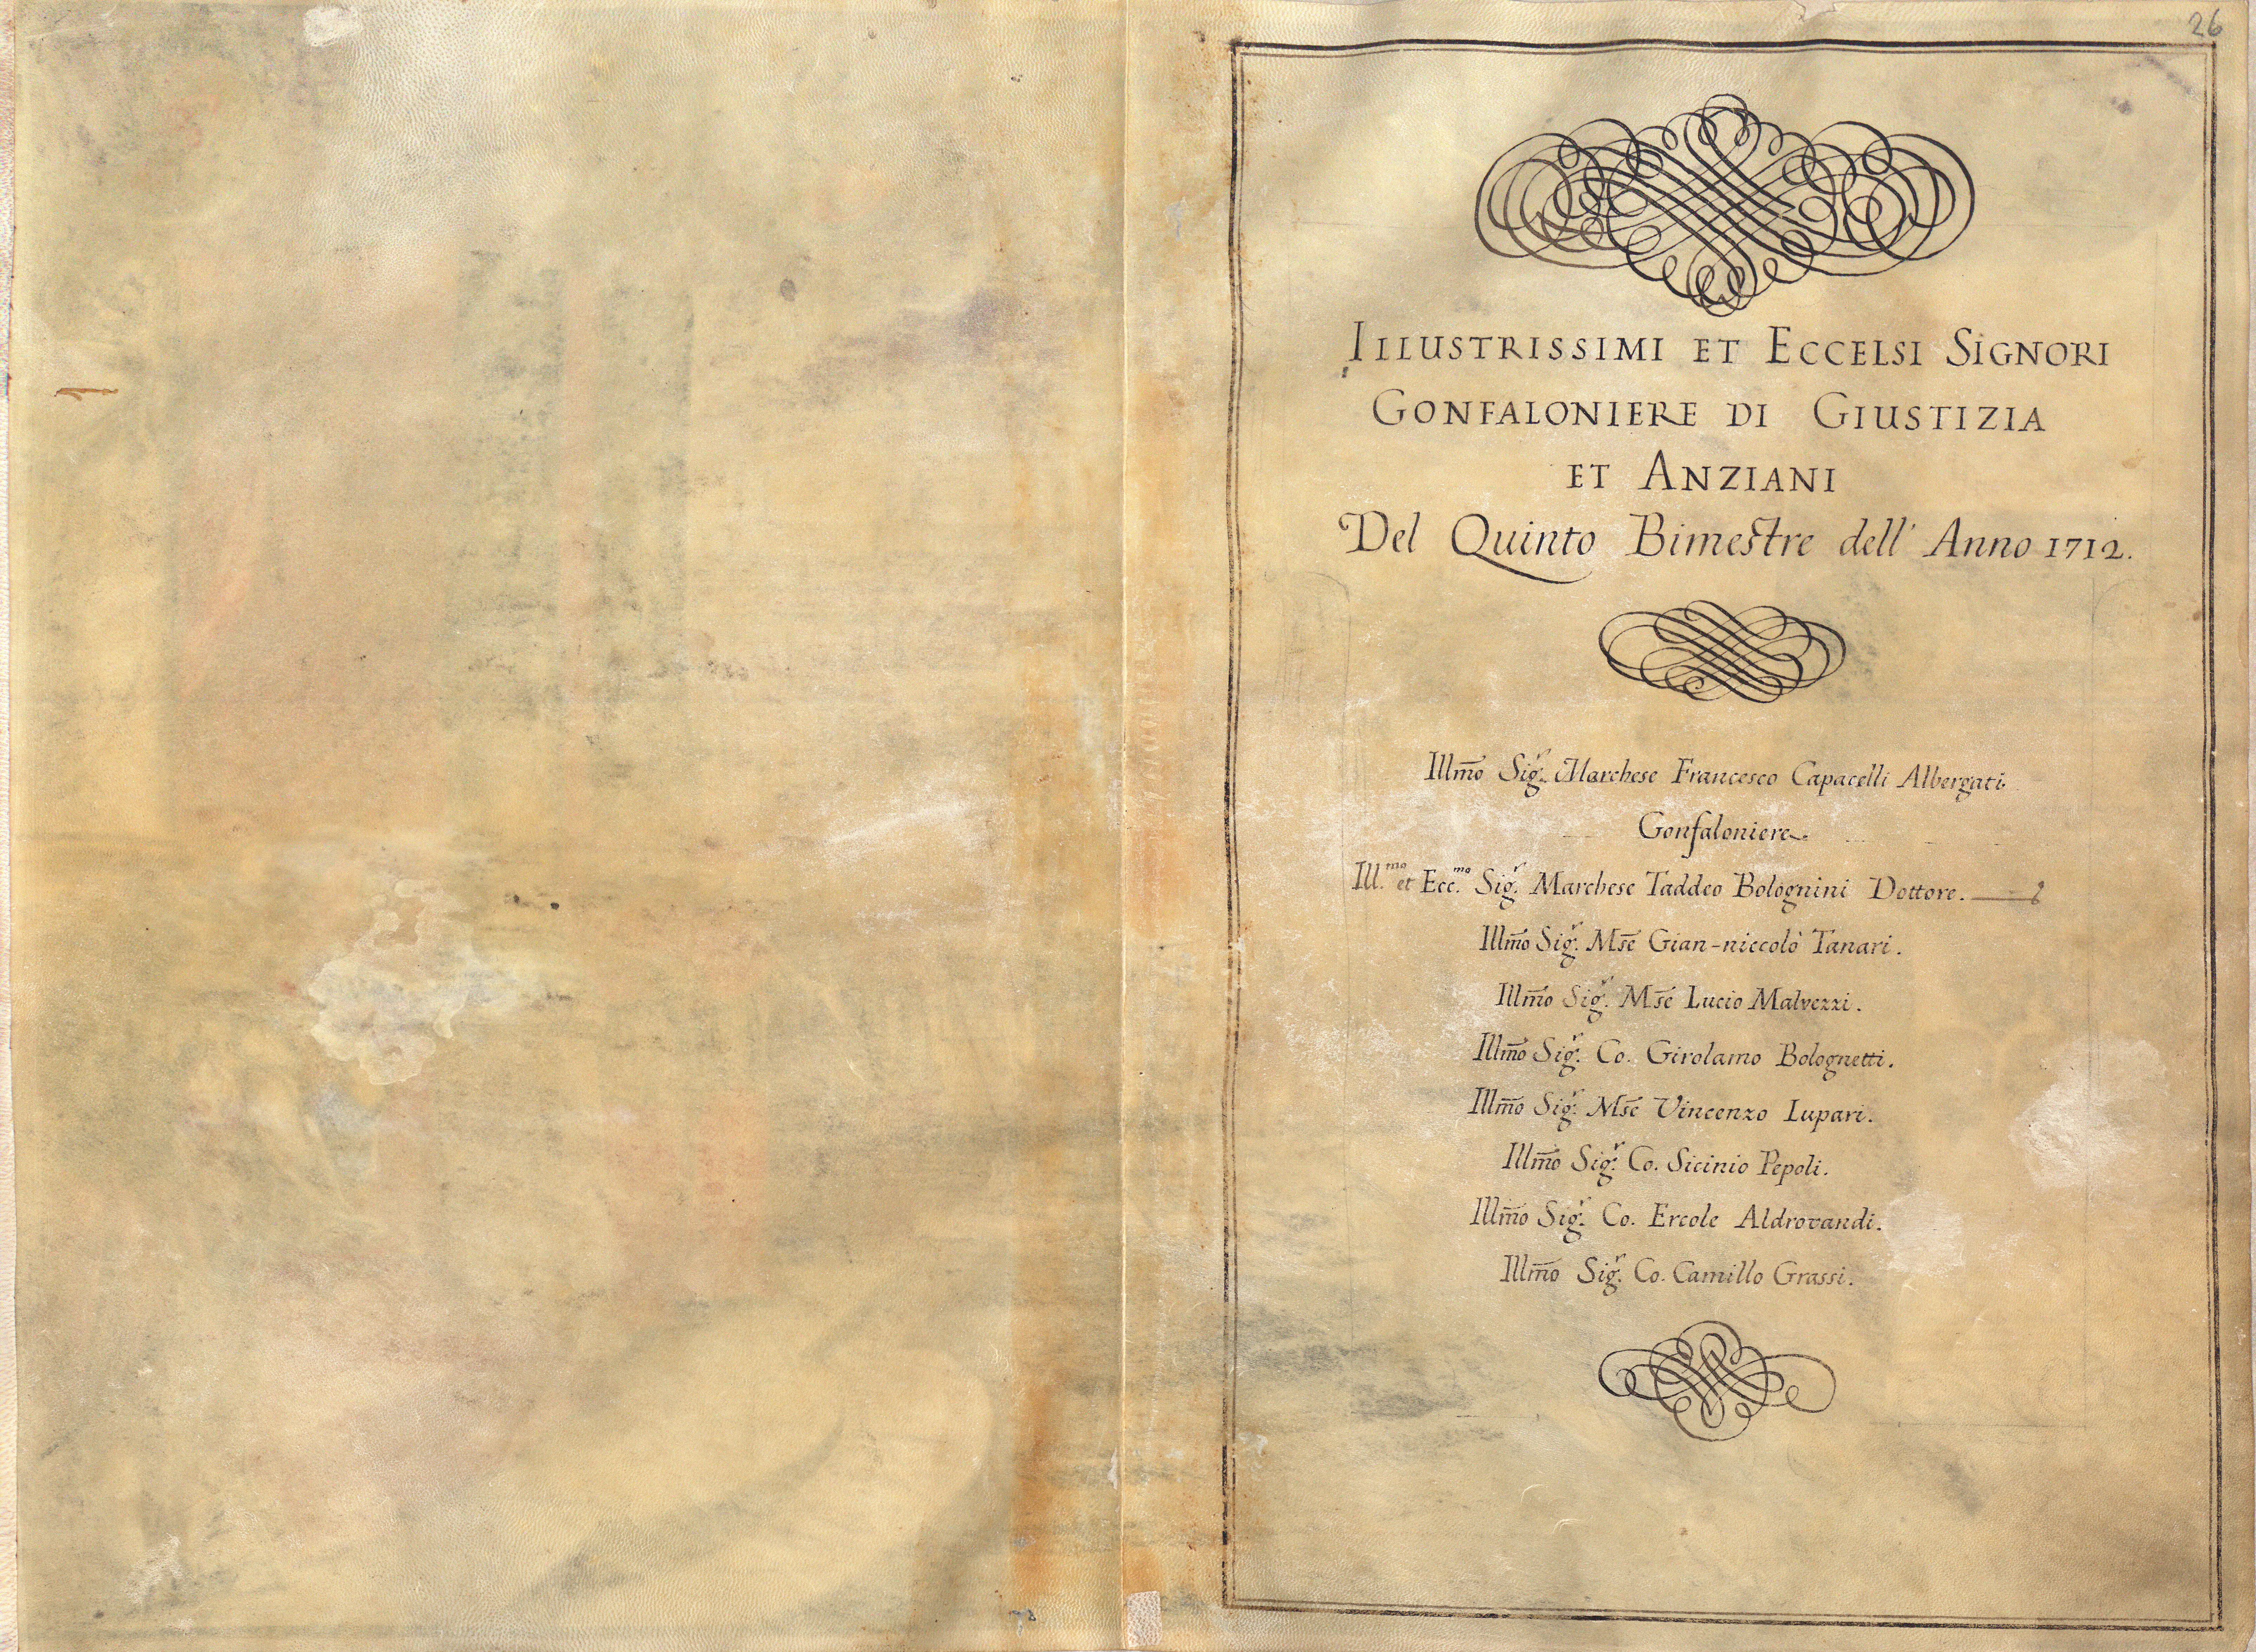 26
ILLUSTRISSIMI ET ECCELSI SIGNORI
GONFALONIERE DI GIUSTIZIA
ET ANZIANI
Del Quinto Bimestre dell' Anno 1712.
Illm̃o Sig.r Marchese Francesco Capacelli Albergati
Gonfaloniere.
Ill.mo et Ecc.mo Sig.r Marchese Taddeo Bolognini Dottore.
Illm̃o Sig.r Mse͂ Gian-niccolò Tanari.
Illm̃o Sig.r Mse͂ Lucio Malvezzi.
Illm̃o Sig.r Co. Girolamo Bolognetti.
Illm̃o Sig.r Mse͂ Vincenzo Lupari.
Illm̃o Sig.r Co. Sicinio Pepoli.
Illm̃o Sig.r Co. Ercole Aldrovandi.
Illm̃o Sig.r Co. Camillo Grassi.